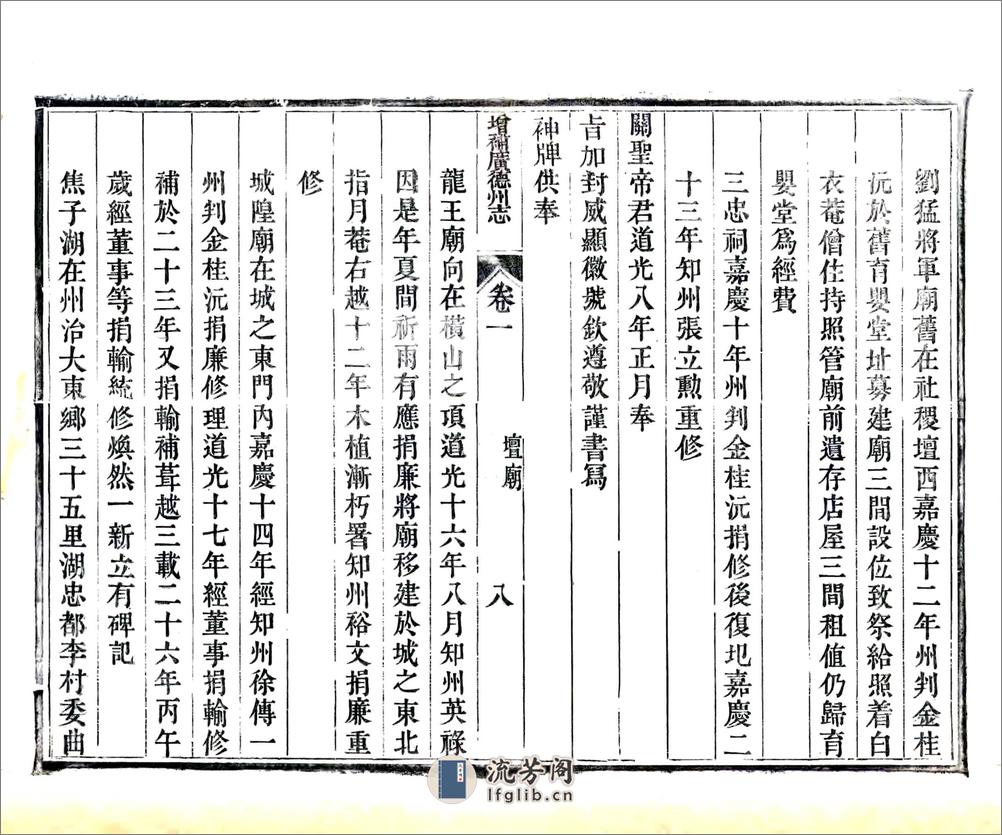 劉猛將軍廟舊在社稷壇西嘉慶十二年州判金桂
沅於舊育嬰堂址募建廟三間設位致祭給照着白
衣菴僧住持照管廟前遺存店屋三間租值仍歸育
嬰堂爲經費
三忠祠嘉慶十年州判金桂沅捐修後復圯嘉慶二
十三年知州張立勲重修
關聖帝君道光八年正月奉
旨加封威顯徽號欽遵敬謹書爲
神牌供奉
增補廣德州志
卷一
壇廟
八
龍王廟向在橫山之項道光十六年八月知州英祿
因是年夏間祈雨有應捐廉將廟移建於城之東北
指月菴右越十二年木植漸朽署知州裕文捐廉重
修
城隍廟在城之東門內嘉慶十四年經知州徐傳一
州判金桂沅捐廉修理道光十七年經董事捐輸修
補於二十三年又捐輸補葺越三載二十六年丙午
歲經董事等捐輸統修煥然一新立有碑記
焦子湖在州治大東鄉三十五里湖忠都李村委曲
流芳阁
lfglib.cn